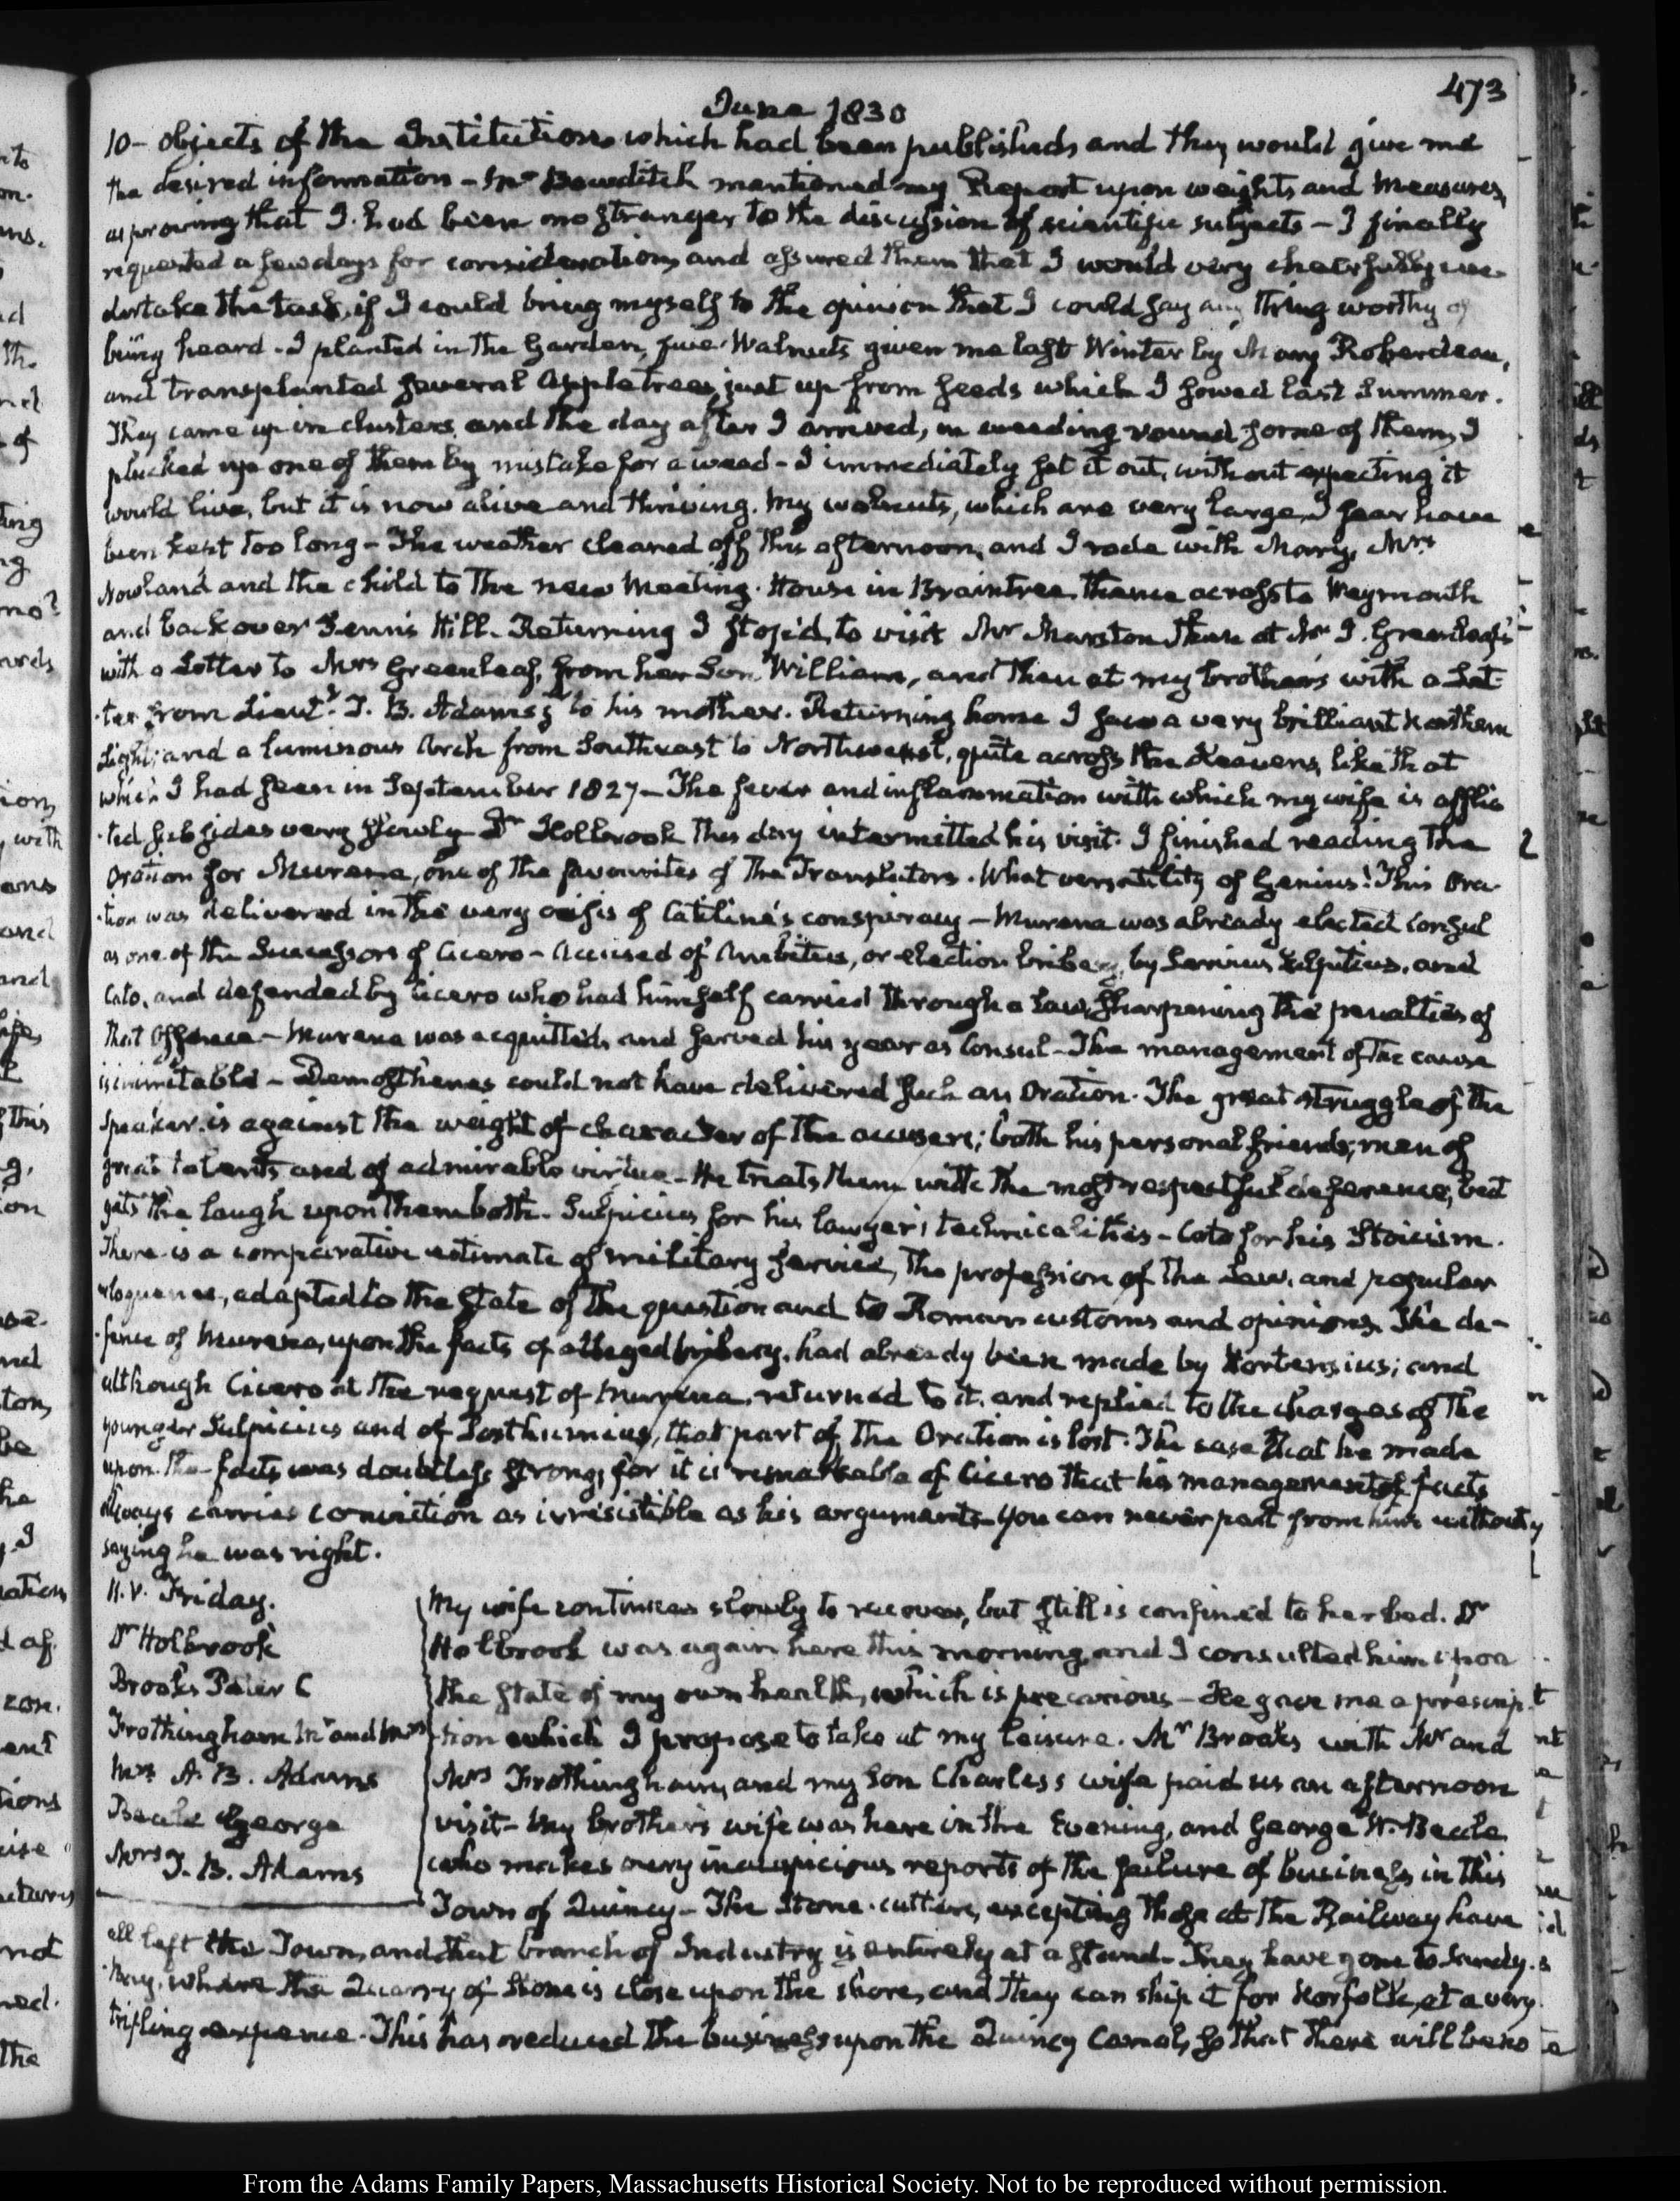 473
June 1830
10- objects of the Institution which had been published, and they would give me
the desired information - Mr Bowditch mentioned my Report upon weights and Measures,
as proving that I had been no stranger to the discussion of scientific subjects - I finally
requested a few days for consideration, and assured them that I would very cheerfully un-
dertake the task, if I could bring myself to the opinion that I could say any thing worthy of
being heard - I planted in the Garden, five Walnuts given me last Winter by Mary Roberdeau,
and transplanted several Apple trees, just up from seeds which I sowed last Summer.
They came up in clusters, and the day after I arrived, in weeding round some of them, I
plucked up one of them by mistake for a weed - I immediately set it out, without expecting it
would live, but it is now alive and thriving. My walnuts, which are very large, I fear have
been kept too long - The weather cleared off this afternoon, and I rode with Mary, Mrs
Nowland and the child to the new Meeting-House in Braintree, thence across to Weymouth
and back over Penn's Hill. Returning I stop'd, to visit Mr Marston then at Mr D. Greenleaf's
with a Letter to Mrs Greenleaf, from her Son William, and then at my brother's with a Let-
ter from Lieut. T. B. Adams to his mother. Returning home I saw a very brilliant Northern
Light; and a luminous Arch from Southeast to Northwest, quite across the Heavens, like that
which I had seen in September 1827 - The fever and inflammation with which my wife is afflic-
ted subsides very slowly Dr Holbrook this day intermitted his visit. I finished reading the
Oration for Murena, one of the favourites of the Translators. What versatility of Genius! This Ora-
tion was delivered in the very crisis of Catiline's conspiracy - Murena was already elected Consul
as one of the Successors of Cicero - Accused of Ambitus, or election bribery, by Servius Sulpitius, and
Cato, and defended by Cicero who had himself carried through a Law, sharpening the penalties of
that Offence - Murena was acquitted, and served his year as Consul - The management of the cause
is inimitable - Demosthenes could not have delivered such an Oration. The great struggle of the
Speaker, is against the weight of character of the accusers; both his personal friends; men of
great talents and of admirable virtue - He treats them with the most respectful deference, but
gets the laugh upon them both. Sulpicius for his lawyer's technicalities - Cato for his Stoicism.
There is a comparative estimate of military service, the profession of the Law, and popular
eloquence, adapted to the state of the question and to Roman customs and opinions. The de-
fence of Murena, upon the facts of alledged bribery, had already been made by Hortensius; and
although Cicero at the request of Murena, returned to it, and replied to the charges of the
younger Sulpicius and of Posthumius, that part of the Oration is lost. The case that he made
upon the facts was doubtless strong, for it is remarkable of Cicero that his management of facts
always carries conviction as irresistible as his arguments - You can never part from him without
saying he was right.
11. V. Friday.
Dr Holbrook
Brooks Peter C
Frothingham Mr and Mrs
Mrs A. B. Adams
Beale George
Mrs T. B. Adams
My wife continues slowly to recover, but still is confined to her bed. Dr
Holbrook was again here this morning, and I consulted him upon
the state of my own health, which is precarious - He gave me a prescrip-
tion which I propose to take at my leisure. Mr Brooks with Mr and
Mrs Frothingham, and my Son Charles's wife paid us an afternoon
visit - My brother's wife was here in the Evening, and George W. Beale
who makes very inauspicious reports of the failure of business in this
Town of Quincy - The Stone-cutters, excepting those at the Railway have
all left the Town, and that branch of Industry is entirely at a stand - They have gone to Sandy-
Bay, where the Quarry of Stone is close upon the shore, and they can ship it for Norfolk, at a very
trifling expence. This has reduced the business upon the Quincy Canal, so that there will be no
From the Adams Family Papers, Massachusetts Historical Society. Not to be reproduced without permission.